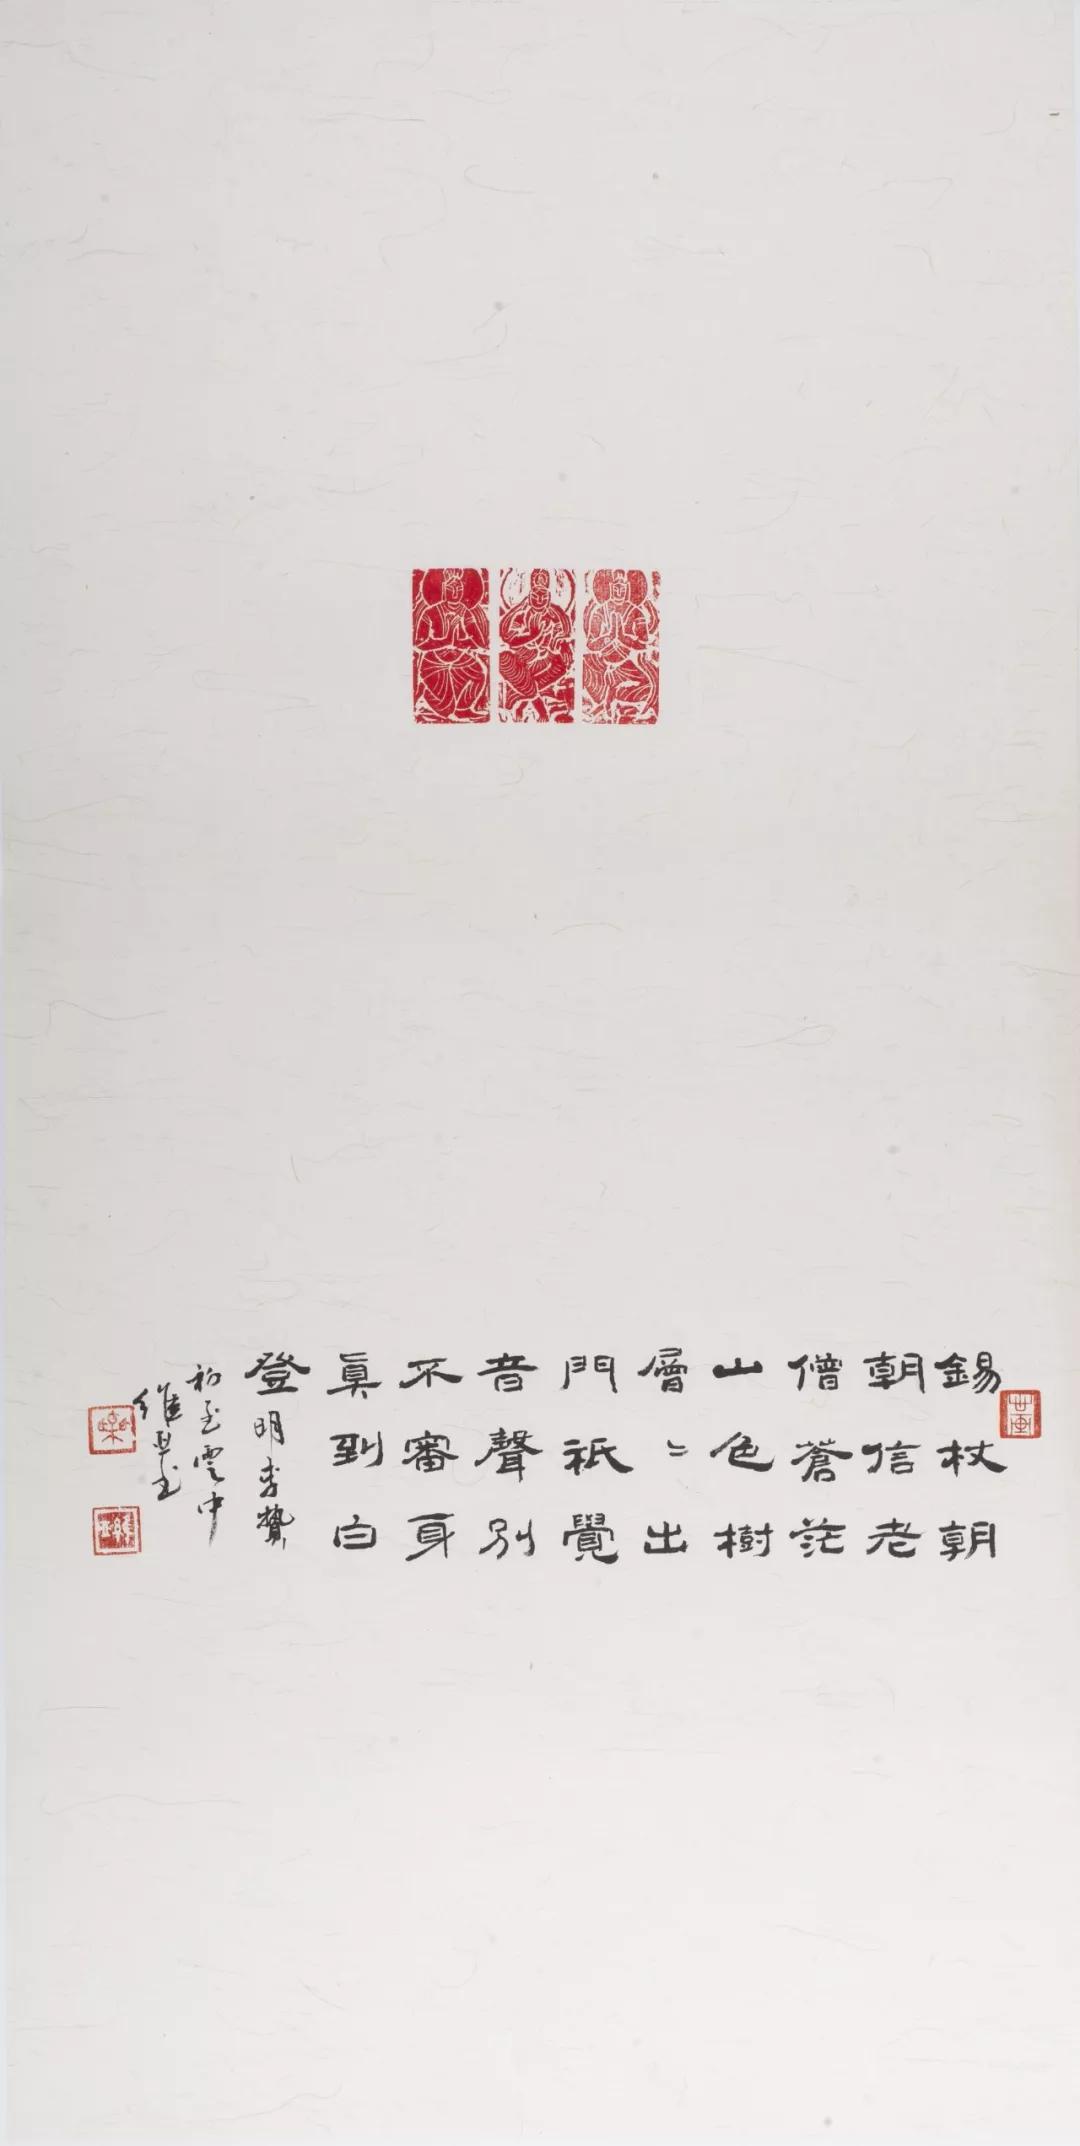 錫杖朝
朝信老
僧蒼茫
山色樹
層〻出
門祇覺
音聲別
不審身
眞到白
登 明李贄
初至雲中
維書